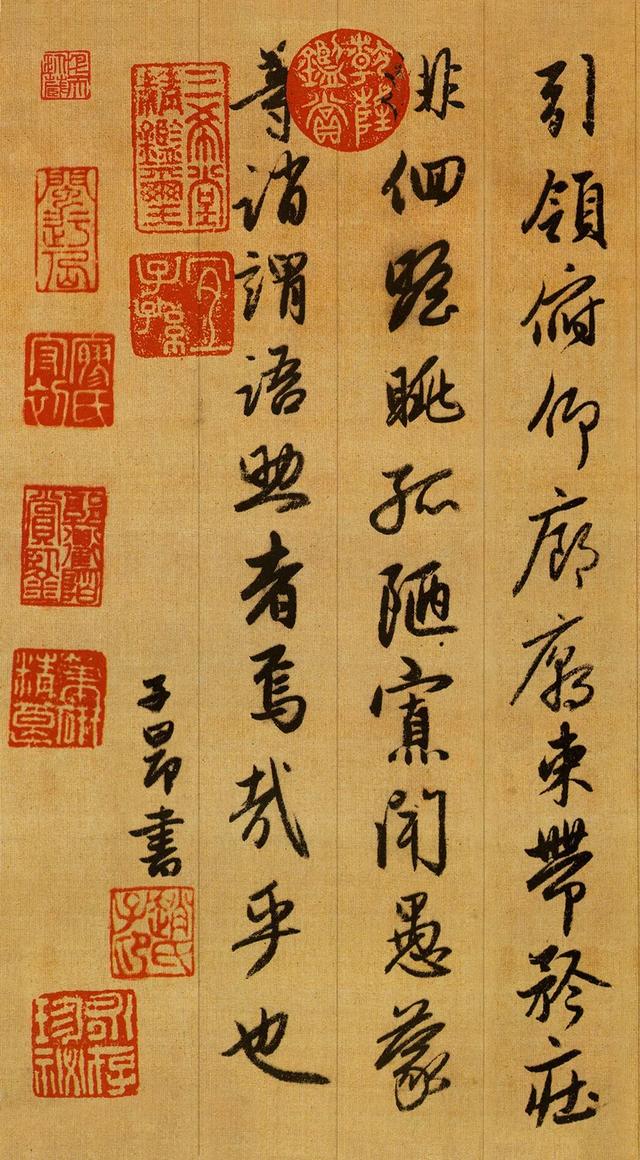 引領俯仰廊廟束帶矜莊
徘徊瞻眺孤陋寡聞愚蒙
等誚謂語助者焉哉乎也
子昂書
乾隆鑑賞
三希堂精鑑璽
宜子孫
趙氏子印